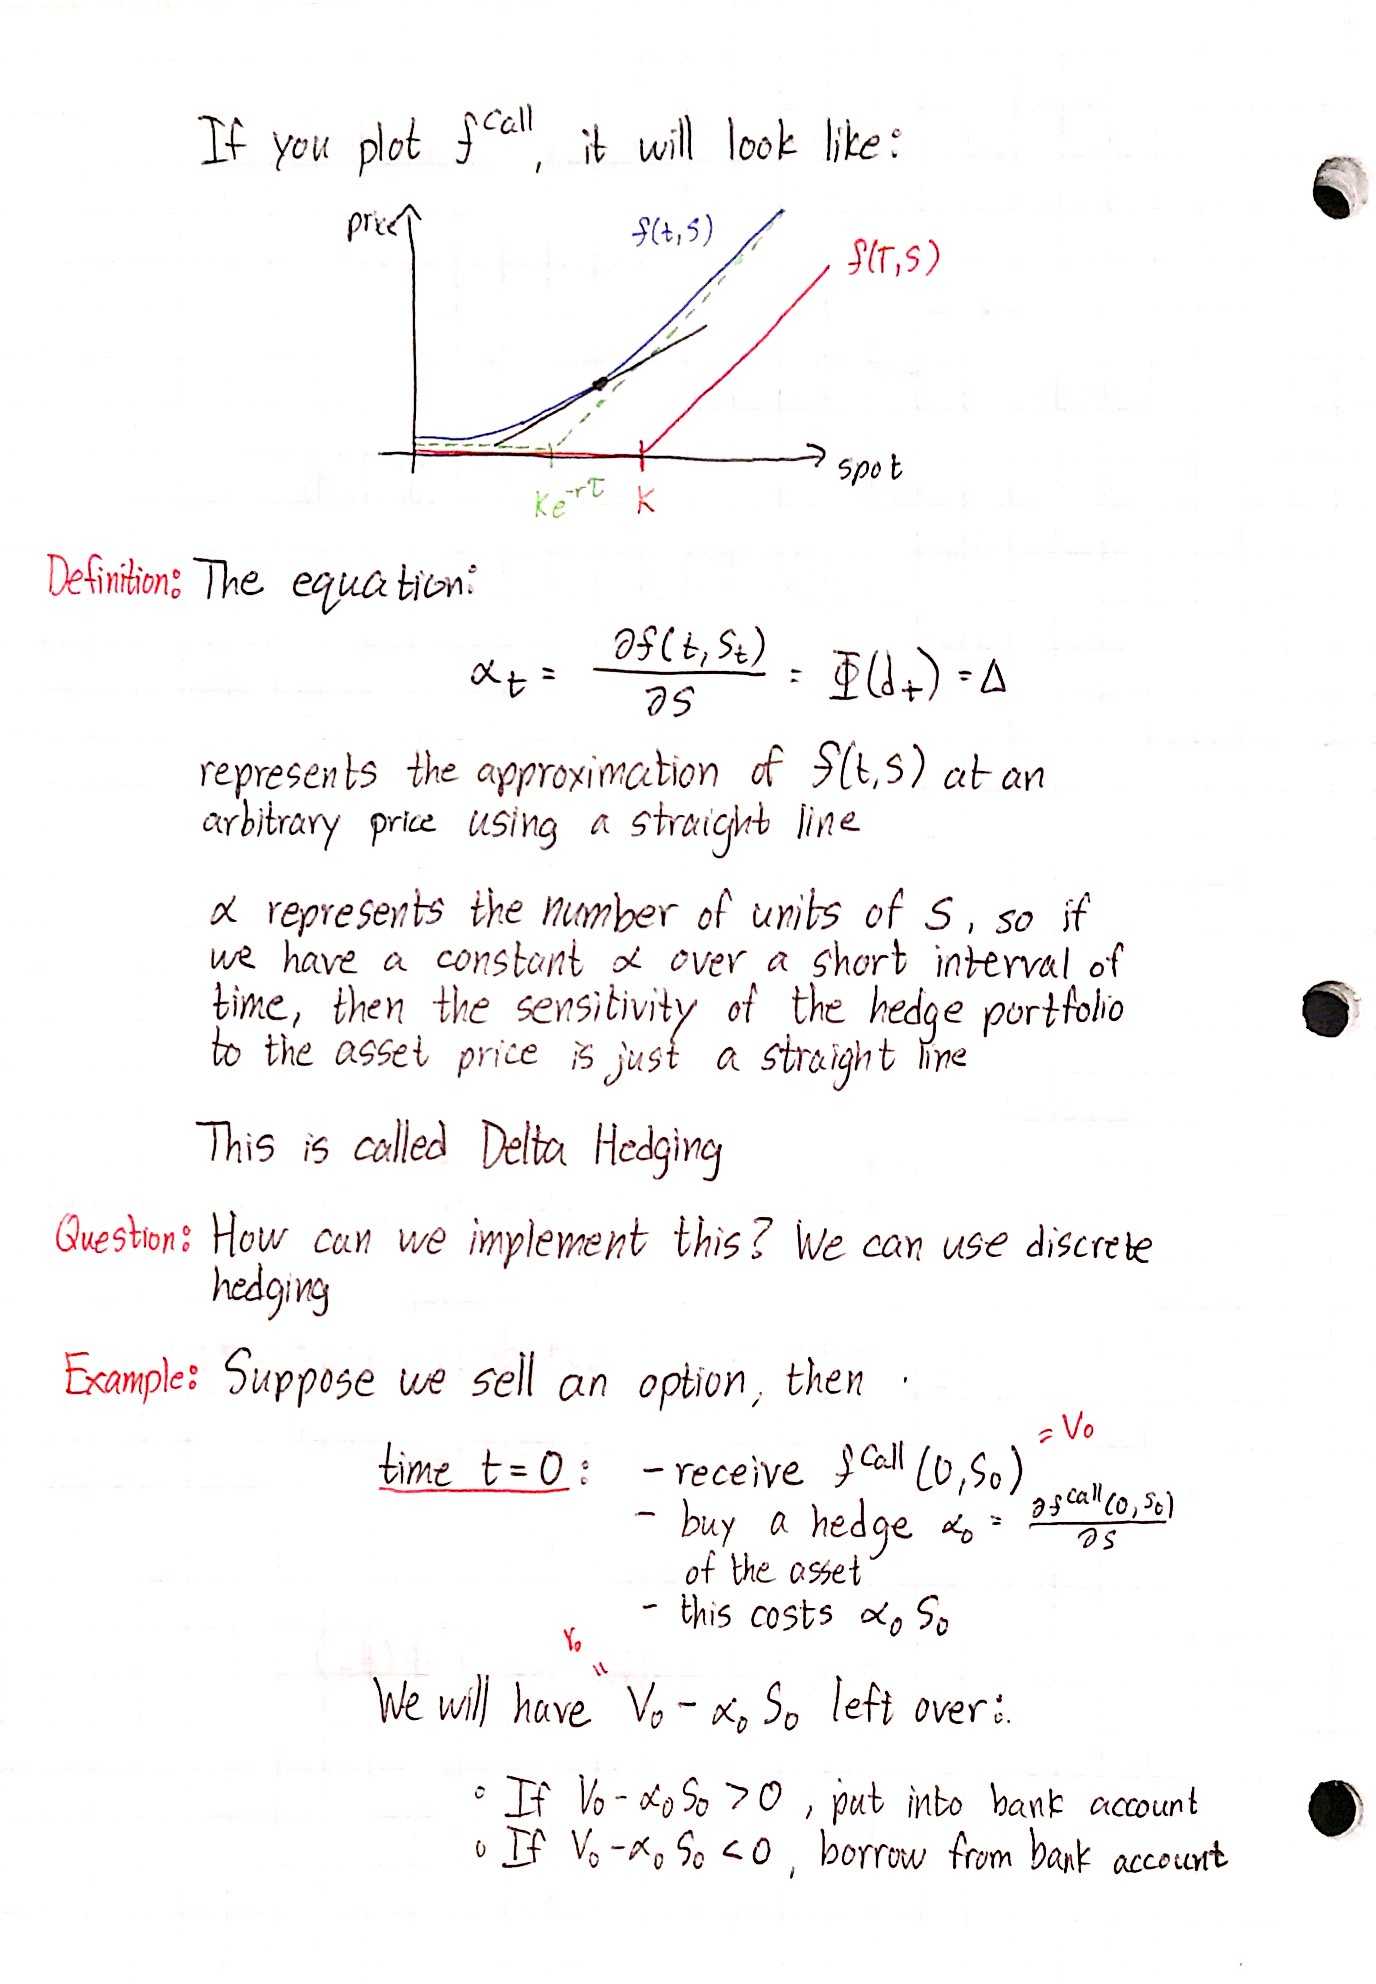 If you plot f^Call, it will look like:
price
f(t,S)
f(T,S)
spot
Ke^-rτ
K
Definition: The equation:
α_t = ∂f(t,S_t) / ∂S = Φ(d_+) = Δ
represents the approximation of f(t,S) at an
arbitrary price using a straight line
α represents the number of units of S, so if
we have a constant α over a short interval of
time, then the sensitivity of the hedge portfolio
to the asset price is just a straight line
This is called Delta Hedging
Question: How can we implement this? We can use discrete
hedging
Example: Suppose we sell an option, then
= V_0
time t = 0: - receive f^Call (0,S_0)
- buy a hedge α_0 = ∂f^Call(0,S_0) / ∂S
of the asset
- this costs α_0 S_0
Y_0
"
We will have V_0 - α_0 S_0 left over:
◦ If V_0 - α_0 S_0 > 0, put into bank account
◦ If V_0 - α_0 S_0 < 0, borrow from bank account